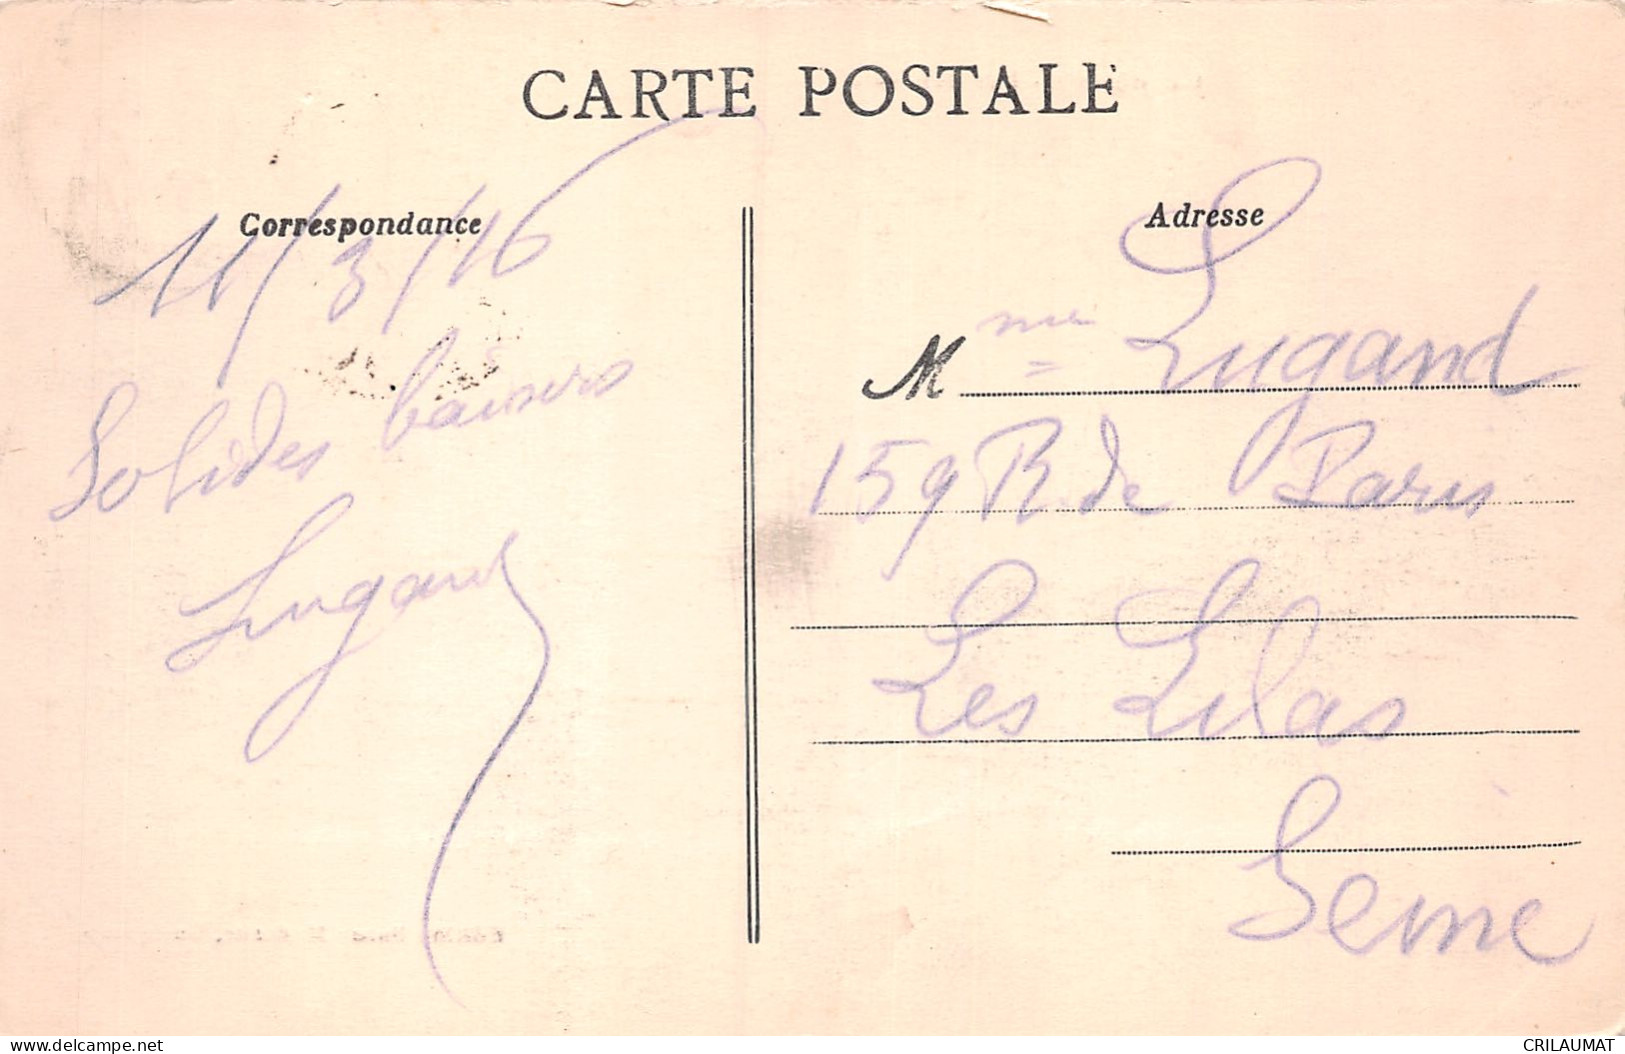 CARTE POSTALE
Correspondance
11/3/16
Solides baisers
Lugand
Adresse
Mme Lugand
159 R. de Paris
Les Lilas
Seine
delcampe.net
CRILAUMAT